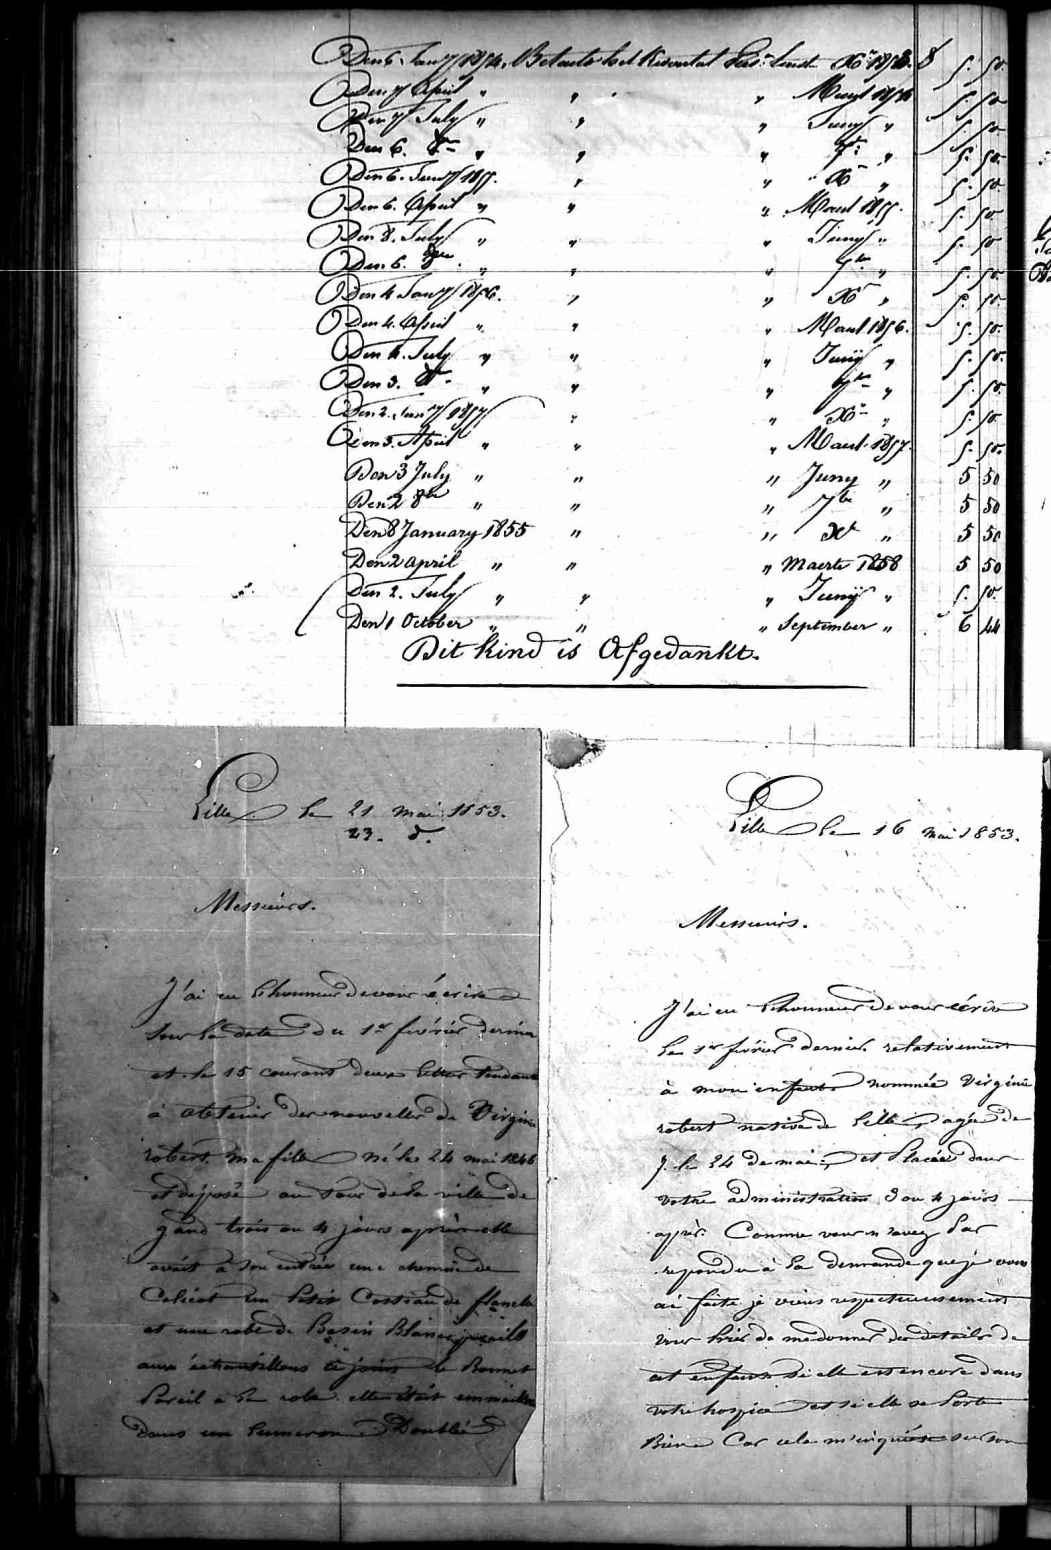 Den 6. Jany 1854. Betaelt het Kwartal Xr 1853. 5. 50.
Den 7 April " " " Maart 1854 5. 50
Den 7 July " " " Juny " 5. 50
Den 6. 8r " " " 7r " 5. 50.
Den 6. Jany 1855. " " Xr " 5. 50
Den 6. April " " " Maart 1855. 5. 50.
Den 8. July " " " Juny " 5. 50
Den 6. 8bre " " " 7bre " 5. 50.
Den 4 Jany 1856. " " Xr " 5. 50
Den 4. April " " " Maart 1856. 5. 50.
Den 4. July " " " Juny " 5. 50.
Den 3. 8r " " " 7bre " 5. 50.
Den 2. Jany 1857 " " Xr " 5. 50.
Den 3. April " " " Maart 1857. 5. 50.
Den 3 July " " " Juny " 5 50
Den 2 8bre " " " 7bre " 5 50
Den 8 January 1855 " " Xr " 5 50
Den 2 april " " " maerte 1858 5 50
Den 2. July " " " Juny " 5. 50.
Den 1 October " " " September " 6 44
Dit kind is Afgedankt.
Lille le 21 mai 1853.
23. d.
Messieurs.
J'ai eu l'honneur de vous écrire
sur la date du 1er février dernier
et le 15 courant deux lettres tendant
à obtenir des nouvelles de Virginie
robert ma fille né le 24 mai 1846
et déposé au tour de la ville de
gand trois ou 4 jours après elle
avait à son entrée une chemise de
Calicot un petit Corsau de flanelle
et une robe de Basin Blanc pareils
aux échantillons ci joins le Bonnet
Pareil a la robe elle était emmaillotée
dans un Doublé
Lille le 16 mai 1853.
Messieurs.
J'ai eu l'honneur de vous écrire
le 1er février dernier relativement
à mon enfant nommée Virginie
robert native de Lille, agée de
7 le 24 de mai, et Placée dans
votre administration 3 ou 4 jours
après. Comme vous n'avez pas
repondu à la demande que je vous
ai faite je viens respectueusement
vous prier de me donner des details de
cet enfant si elle est encore dans
votre hospice et si elle se Porte
Bien Car cela m'inquiète sur son